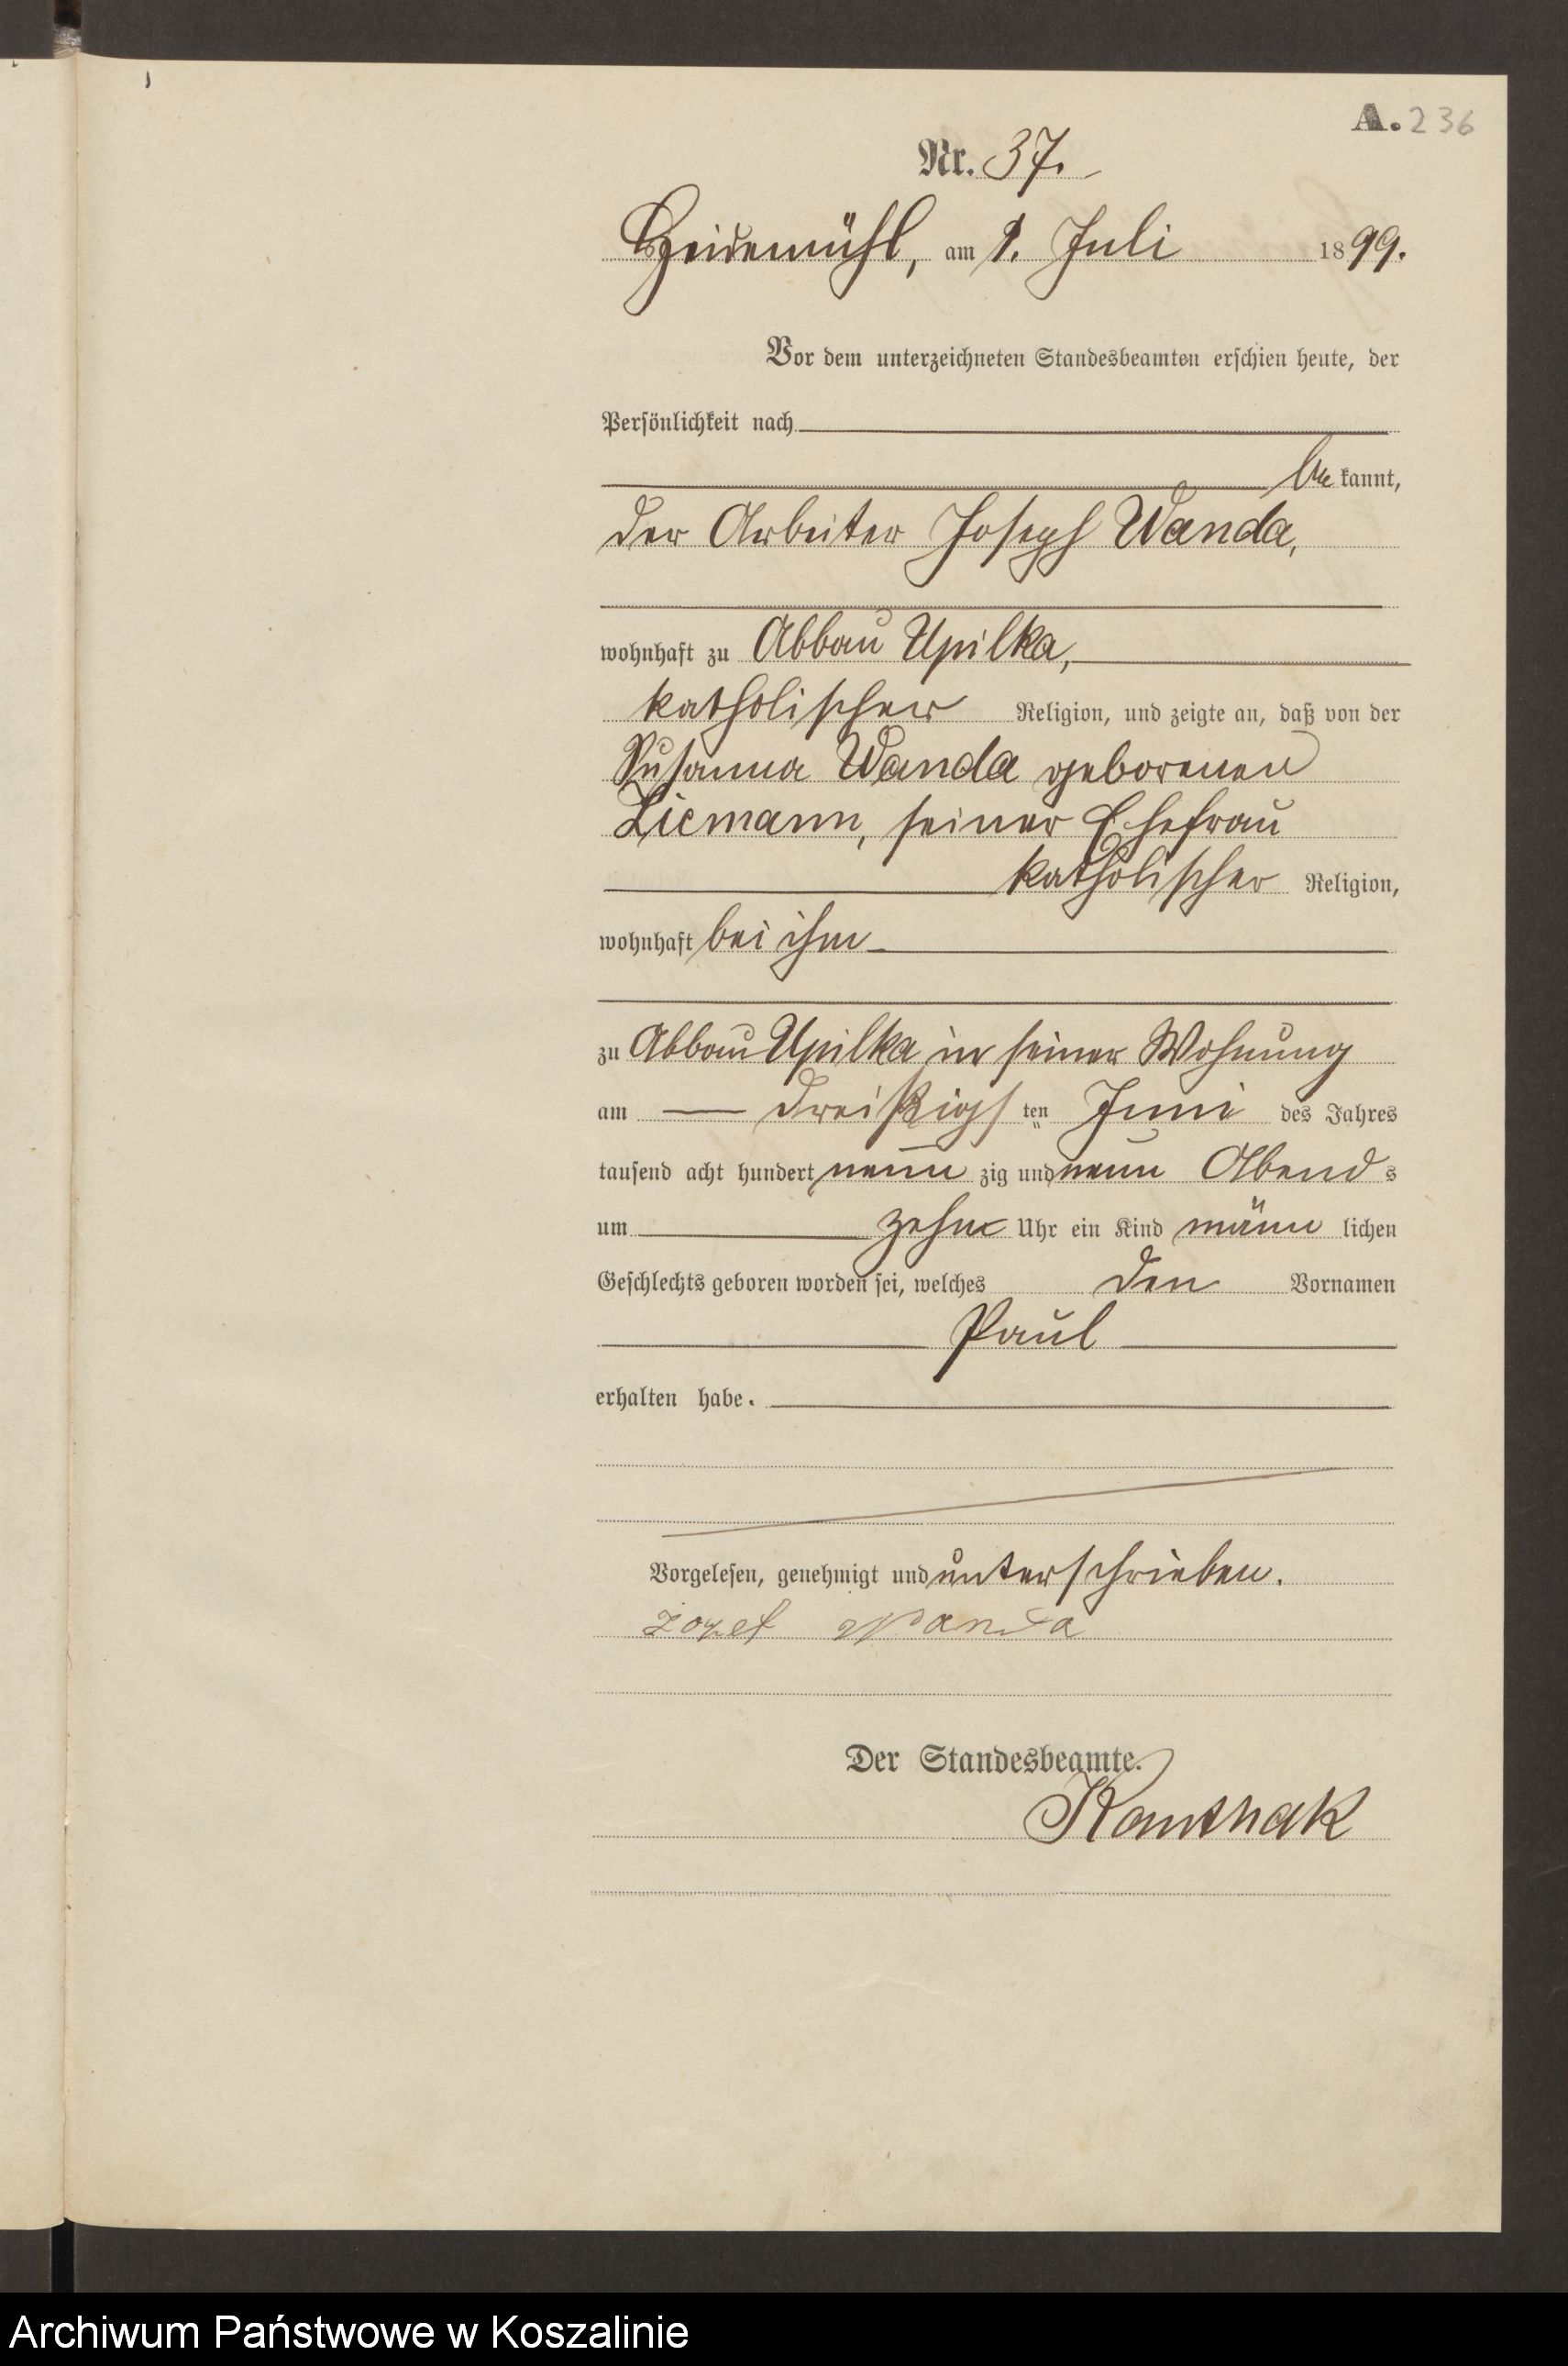 A. 236
Nr. 37.
Heidemühl, am 1. Juli 1899.
Vor dem unterzeichneten Standesbeamten erschien heute, der
Persönlichkeit nach
be kannt,
der Arbeiter Joseph Wanda,
wohnhaft zu Abbau Upilka,
katholischer Religion, und zeigte an, daß von der
Susanna Wanda geborenen
Liemann, seiner Ehefrau
katholischer Religion,
wohnhaft bei ihm
zu Abbau Upilka in seiner Wohnung
am dreißigsten Juni des Jahres
tausend acht hundert neun zig und neun Abends
um zehn Uhr ein Kind männ lichen
Geschlechts geboren worden sei, welches den Vornamen
Paul
erhalten habe.
Vorgelesen, genehmigt und unterschrieben.
Jozef Wanda
Der Standesbeamte.
Archiwum Państwowe w Koszalinie